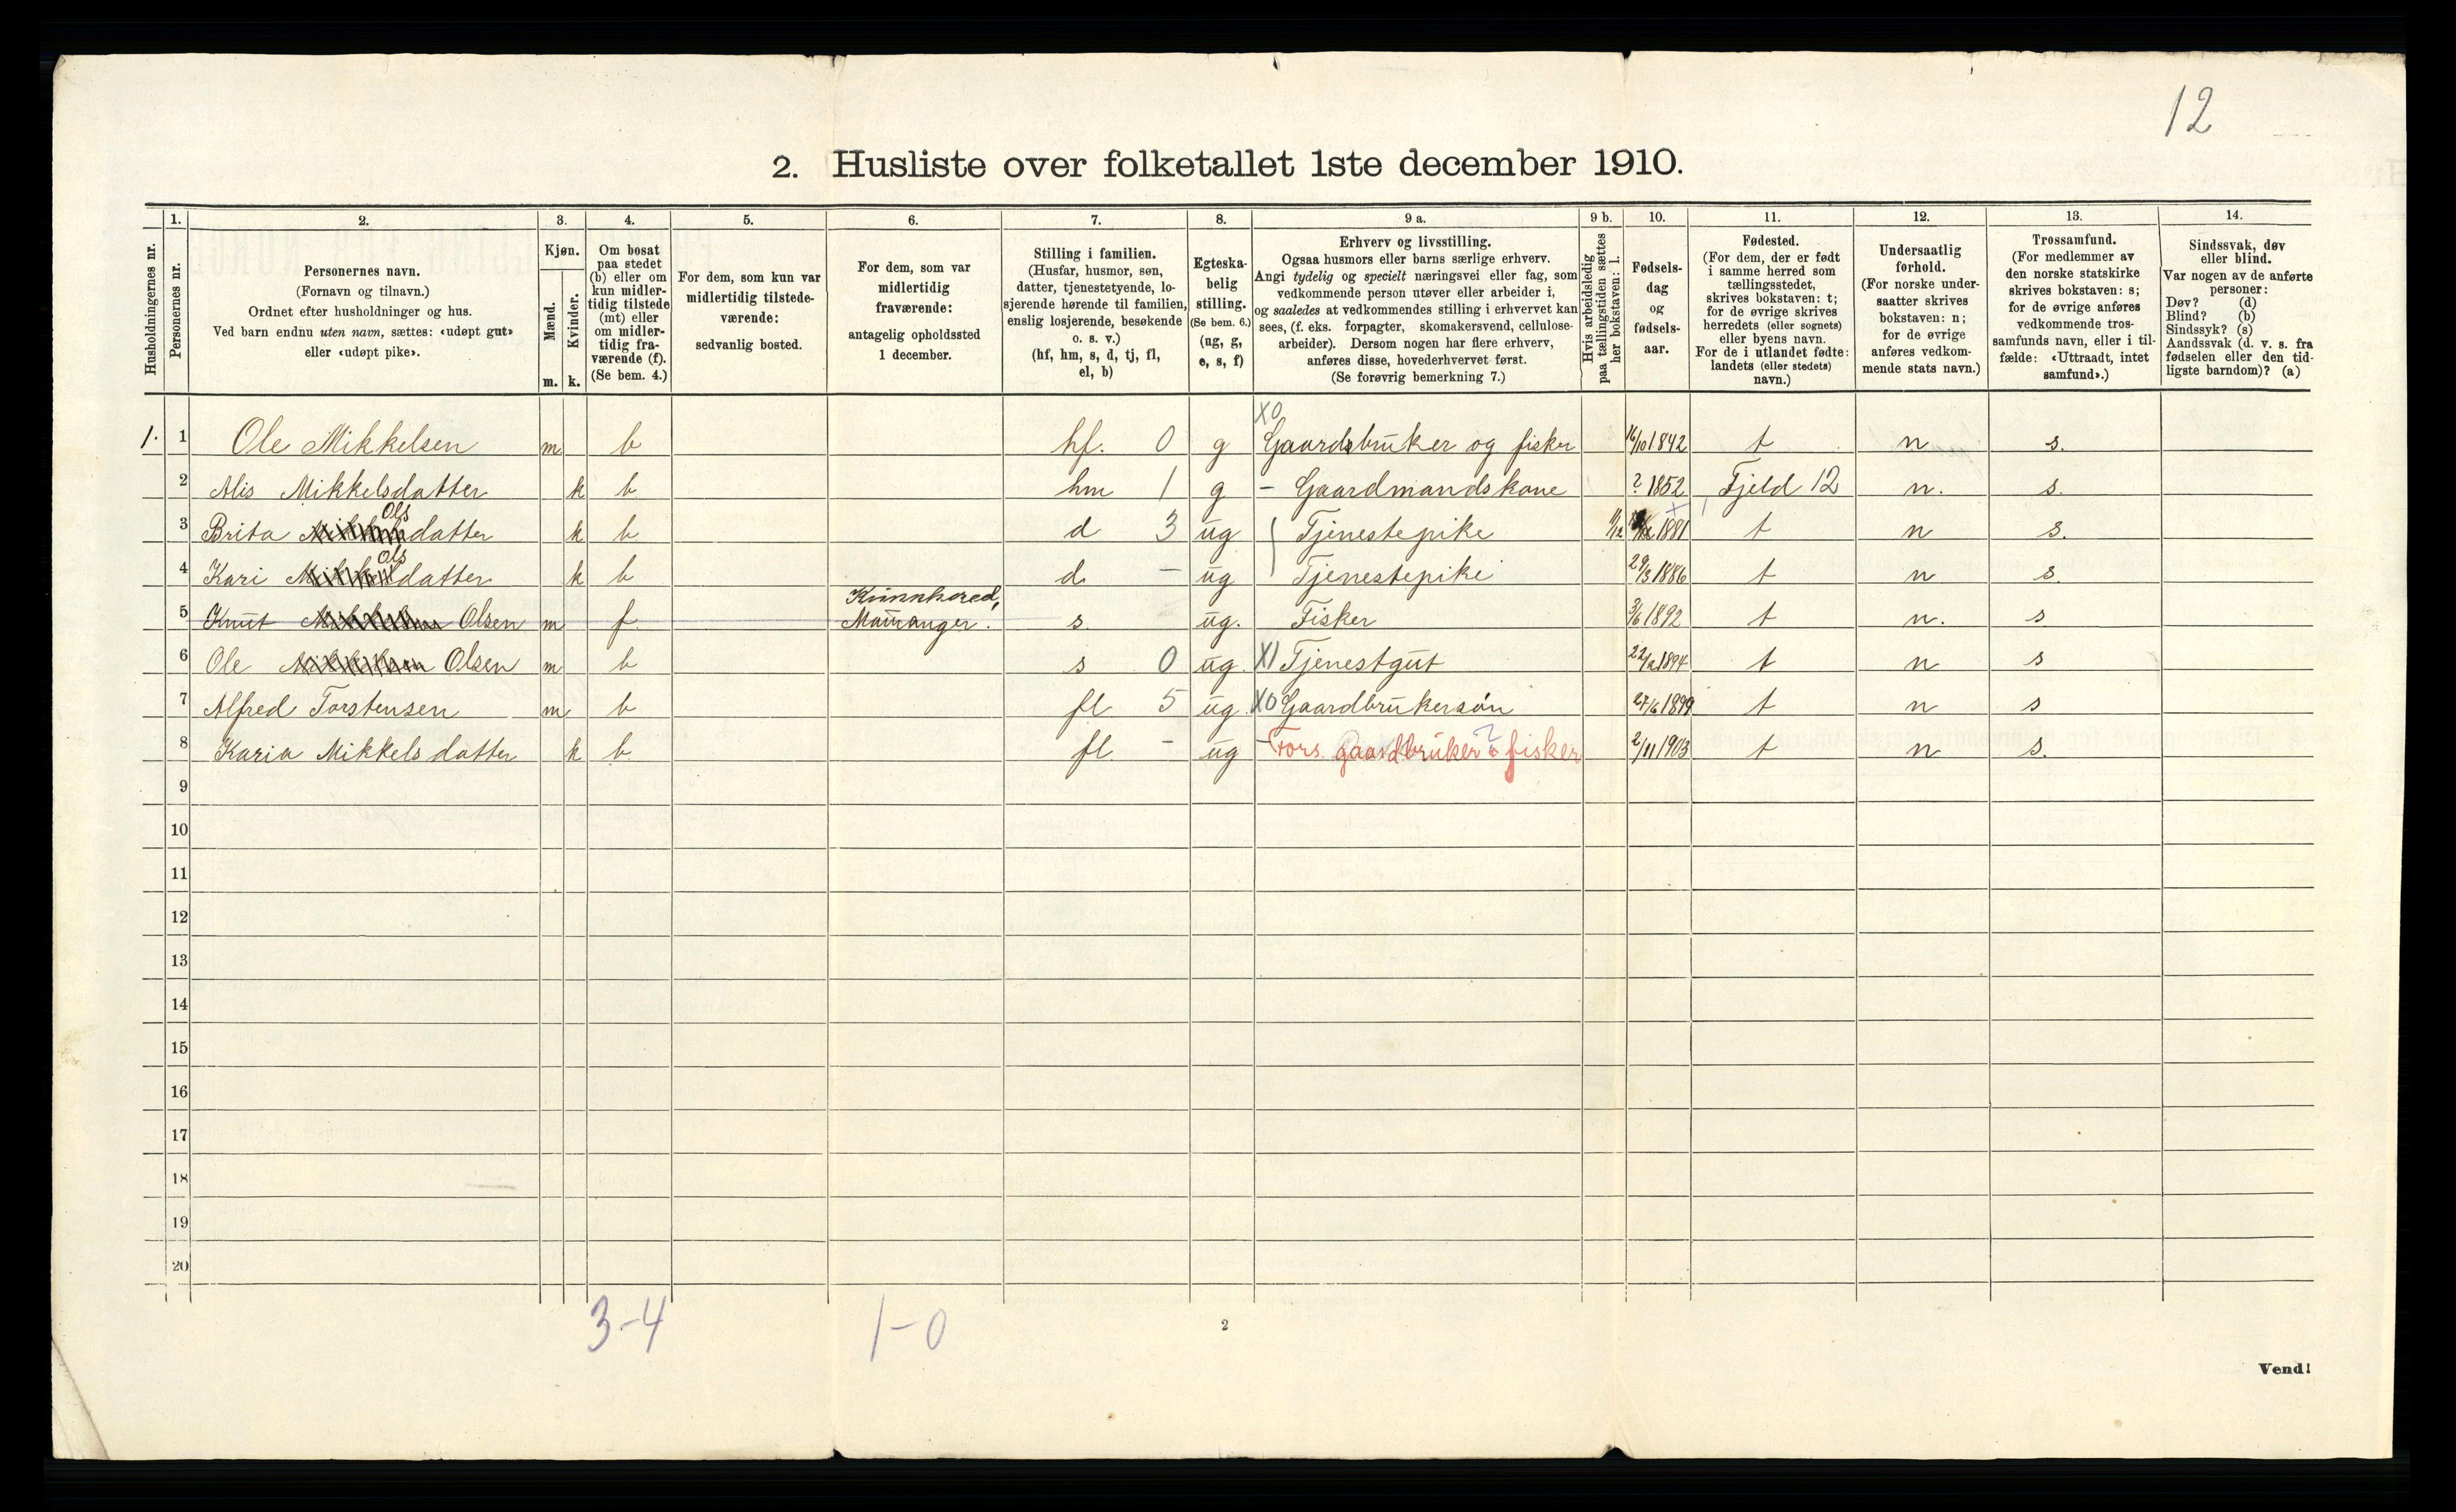 12
2. Husliste over folketallet 1ste december 1910.
Husholdningernes nr.
1.
Personernes nr.
2.
Personernes navn.
(Fornavn og tilnavn.)
Ordnet efter husholdninger og hus.
Ved barn endnu uten navn, sættes: «udøpt gut»
eller «udøpt pike».
3.
Kjøn.
Mænd.
Kvinder.
m. k.
4.
Om bosat
paa stedet
(b) eller om
kun midler-
tidig tilstede
(mt) eller
om midler-
tidig fra-
værende (f).
(Se bem. 4.)
5.
For dem, som kun var
midlertidig tilstede-
værende:
sedvanlig bosted.
6.
For dem, som var
midlertidig
fraværende:
antagelig opholdssted
1 december.
7.
Stilling i familien.
(Husfar, husmor, søn,
datter, tjenestetyende, lo-
sjerende hørende til familien,
enslig losjerende, besøkende
o. s. v.)
(hf, hm, s, d, tj, fl,
el, b)
8.
Egteska-
belig
stilling.
(Se bem. 6.)
(ug, g,
e, s, f)
9 a.
Erhverv og livsstilling.
Ogsaa husmors eller barns særlige erhverv.
Angi tydelig og specielt næringsvei eller fag, som
vedkommende person utøver eller arbeider i,
og saaledes at vedkommendes stilling i erhvervet kan
sees, (f. eks. forpagter, skomakersvend, cellulose-
arbeider). Dersom nogen har flere erhverv,
anføres disse, hovederhvervet først.
(Se forøvrig bemerkning 7.)
9 b.
Hvis arbeidsledig
paa tællingstiden sættes
her bokstaven: l.
10.
Fødsels-
dag
og
fødsels-
aar.
11.
Fødested.
(For dem, der er født
i samme herred som
tællingsstedet,
skrives bokstaven: t;
for de øvrige skrives
herredets (eller sognets)
eller byens navn.
For de i utlandet fødte:
landets (eller stedets)
navn.)
12.
Undersaatlig
forhold.
(For norske under-
saatter skrives
bokstaven: n;
for de øvrige
anføres vedkom-
mende stats navn.)
13.
Trossamfund.
(For medlemmer av
den norske statskirke
skrives bokstaven: s;
for de øvrige anføres
vedkommende tros-
samfunds navn, eller i til-
fælde: «Uttraadt, intet
samfund».)
14.
Sindssvak, døv
eller blind.
Var nogen av de anførte
personer:
Døv? (d)
Blind? (b)
Sindssyk? (s)
Aandssvak (d. v. s. fra
fødselen eller den tid-
ligste barndom)? (a)
1. 1 Ole Mikkelsen m b hf. 0 g X0 Gaardsbruker og fisker 16/10 1842 t n s.
2 Alis Mikkelsdatter k b hm 1 g - Gaardmandskone ? 1852 Fjeld 12 n. s.
3 Brita Olsdatter k b d 3 ug Tjenestepike 11/12 1881 t n s.
4 Kari Olsdatter k b d - ug Tjenestepike 29/3 1886 t n s.
5 Knut Olsen m f Mauranger. s ug. Fisker 3/6 1892 t n. s
6 Ole Olsen m b s 0 ug. X1 Tjenestgut 22/2 1894 t n s
7 Alfred Torstensen m b fl 5 ug X0 Gaardbrukersøn 27/6 1899 t n s
8 Karia Mikkelsdatter k b fl - ug - Fors. gaardbruker o fisker ? 2/11 1903 t n s.
9
10
11
12
13
14
15
16
17
18
19
20
3-4 1-0
2
Vend!